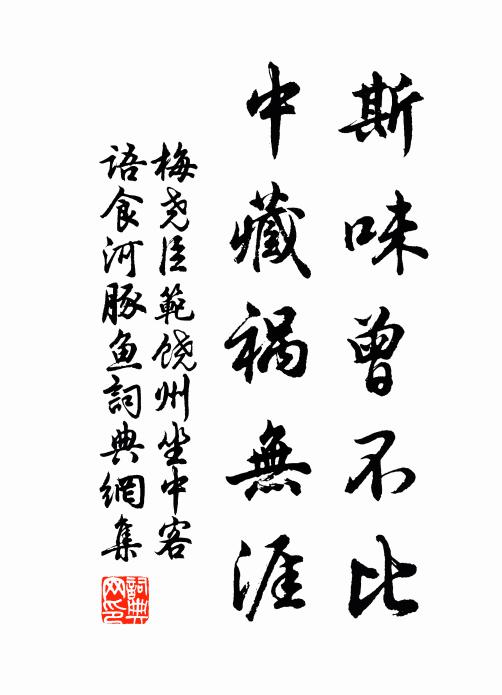 斯味曾不比
中藏禍無涯
梅尧臣範饶州坐中客
语食河豚鱼詞典網集
詞典网印